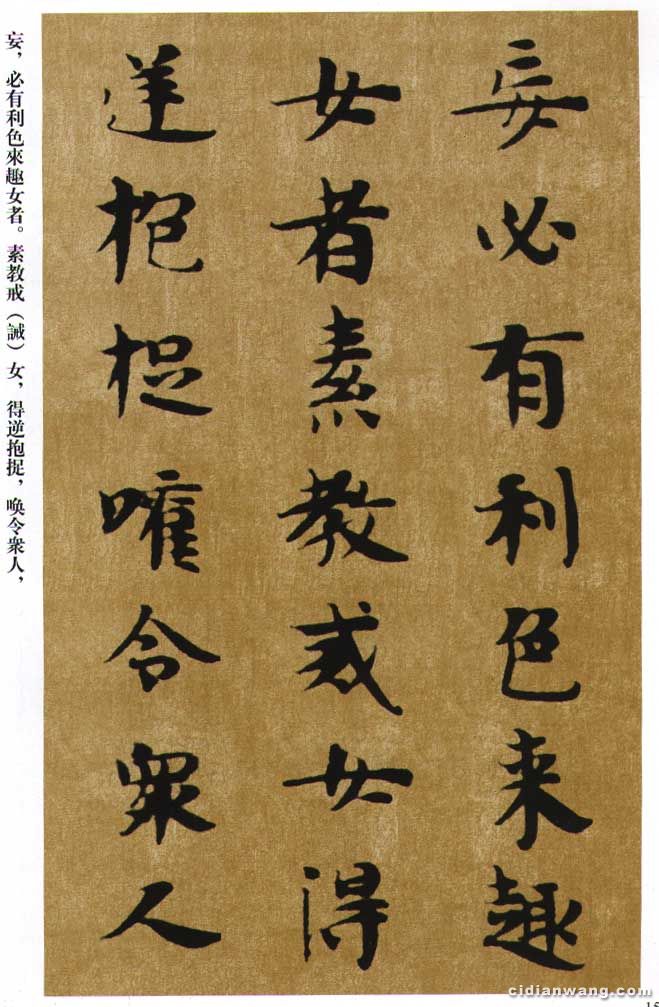 妄必有利色来趣
女者素教戒女得
逆抱捉嚾令衆人
妄，必有利色來趣女者。素教戒（誡）女，得逆抱捉，喚令衆人，
cidianwang.com
15